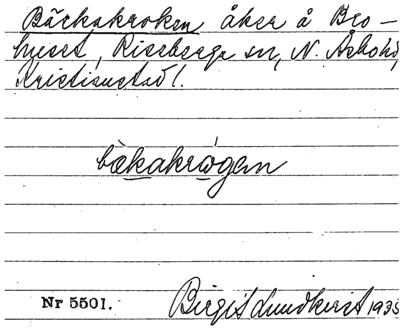 Bäckakroken åker å Bro-
huset, Riseberga sn, N. Åsbohd,
Kristianstad l.
bækakrωgen
Nr 5501. Birgit Lundkvist 1935